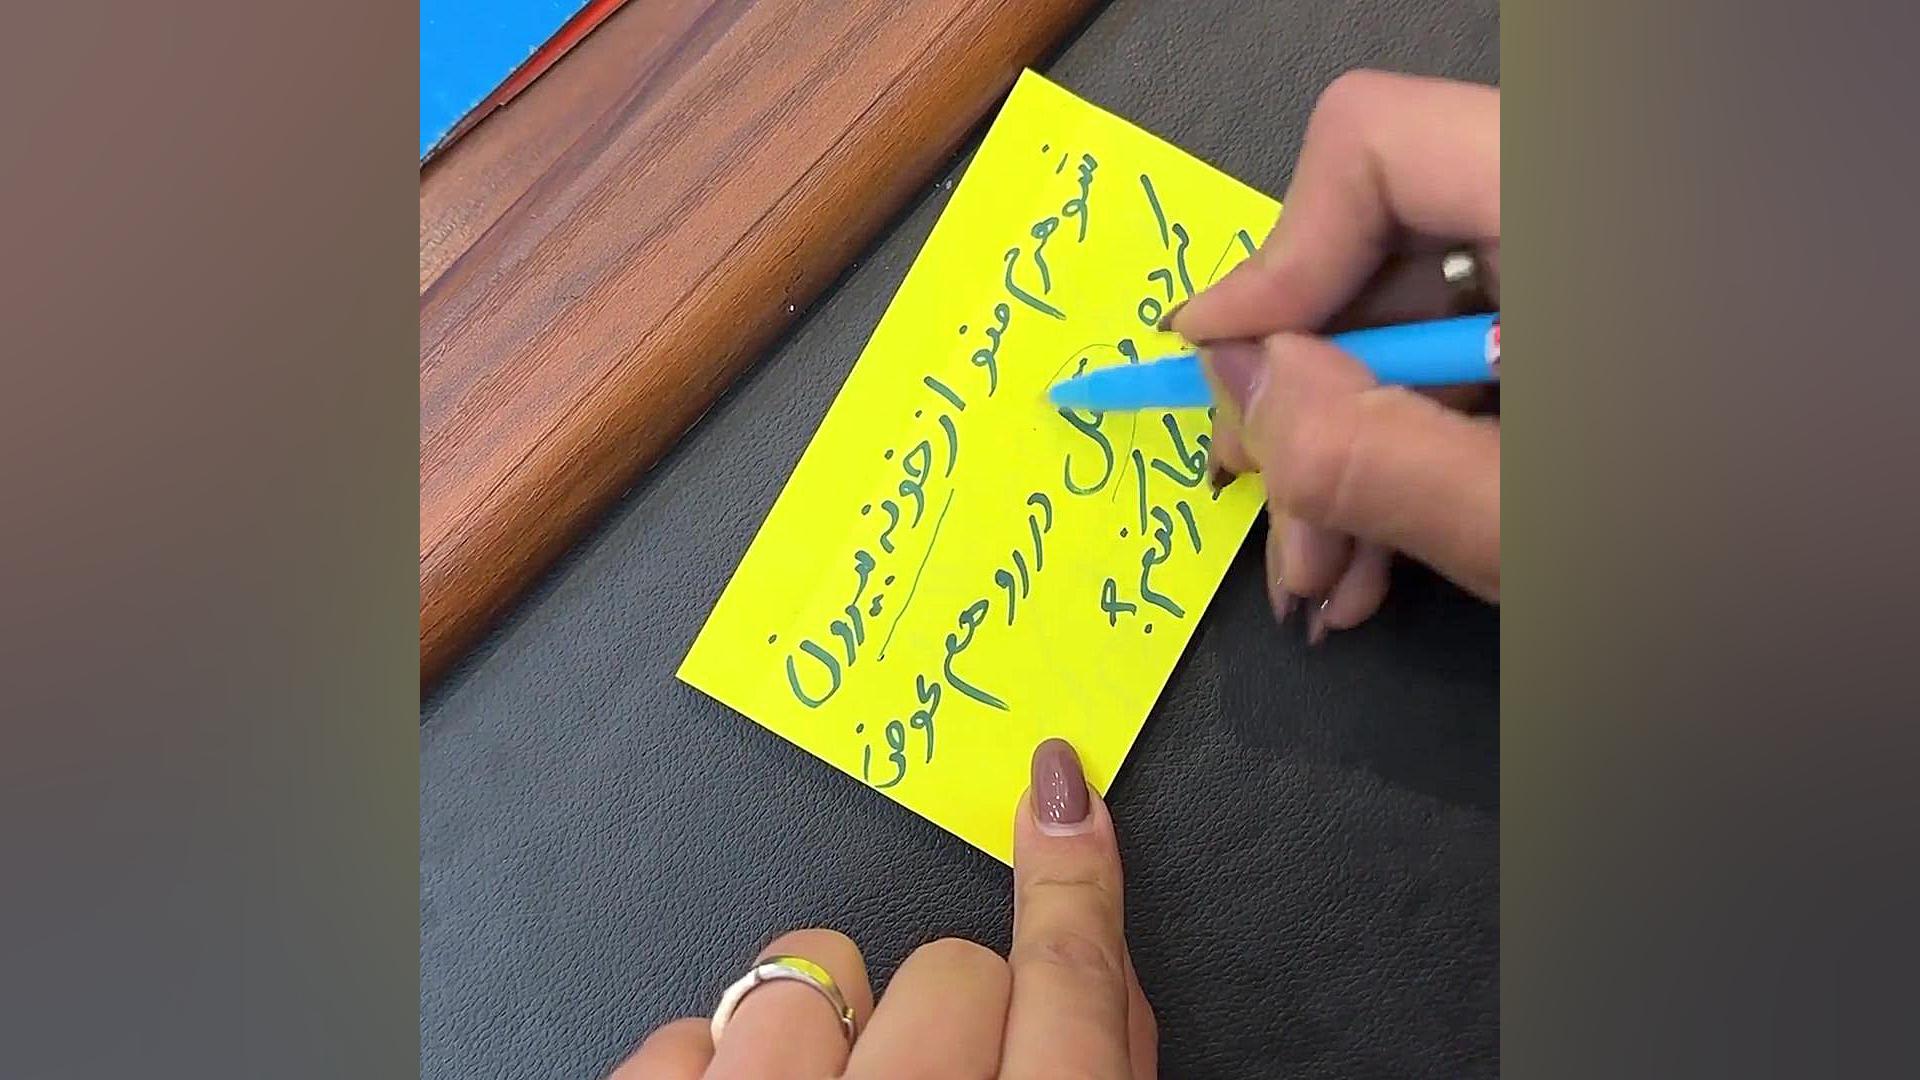 شوهرم منو از خونه بیرون
کرده و قفل در رو هم عوض
کنم؟